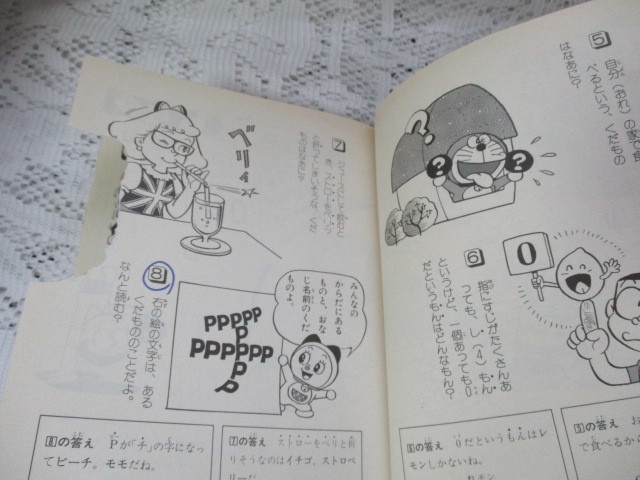 5
自分（おれ）の家で食
べるという、くだもの
はなあに？
6
指にすじがたくさんあ
っても、し（4）もん
というけど、一個あっても0
だというもんはどんなもん？
0
?
?
?
7
ベリィ
みんなの
からだにある
ものと、おな
じ名前のくだ
ものよ。
8
右の絵の文字は、ある
くだもののことだよ。
なんと読む？
PPPPP
P
PPPPPP
P
P
P
8の答え　Pが「チ」の字になっ
てピーチ。モモだね。
7の答え　ストローをベリと折
りそうなのはイチゴ、ストロベ
リーだ
6の答え　0だというもんはレ
モンしかないね。
5の答え　お
で食べるから